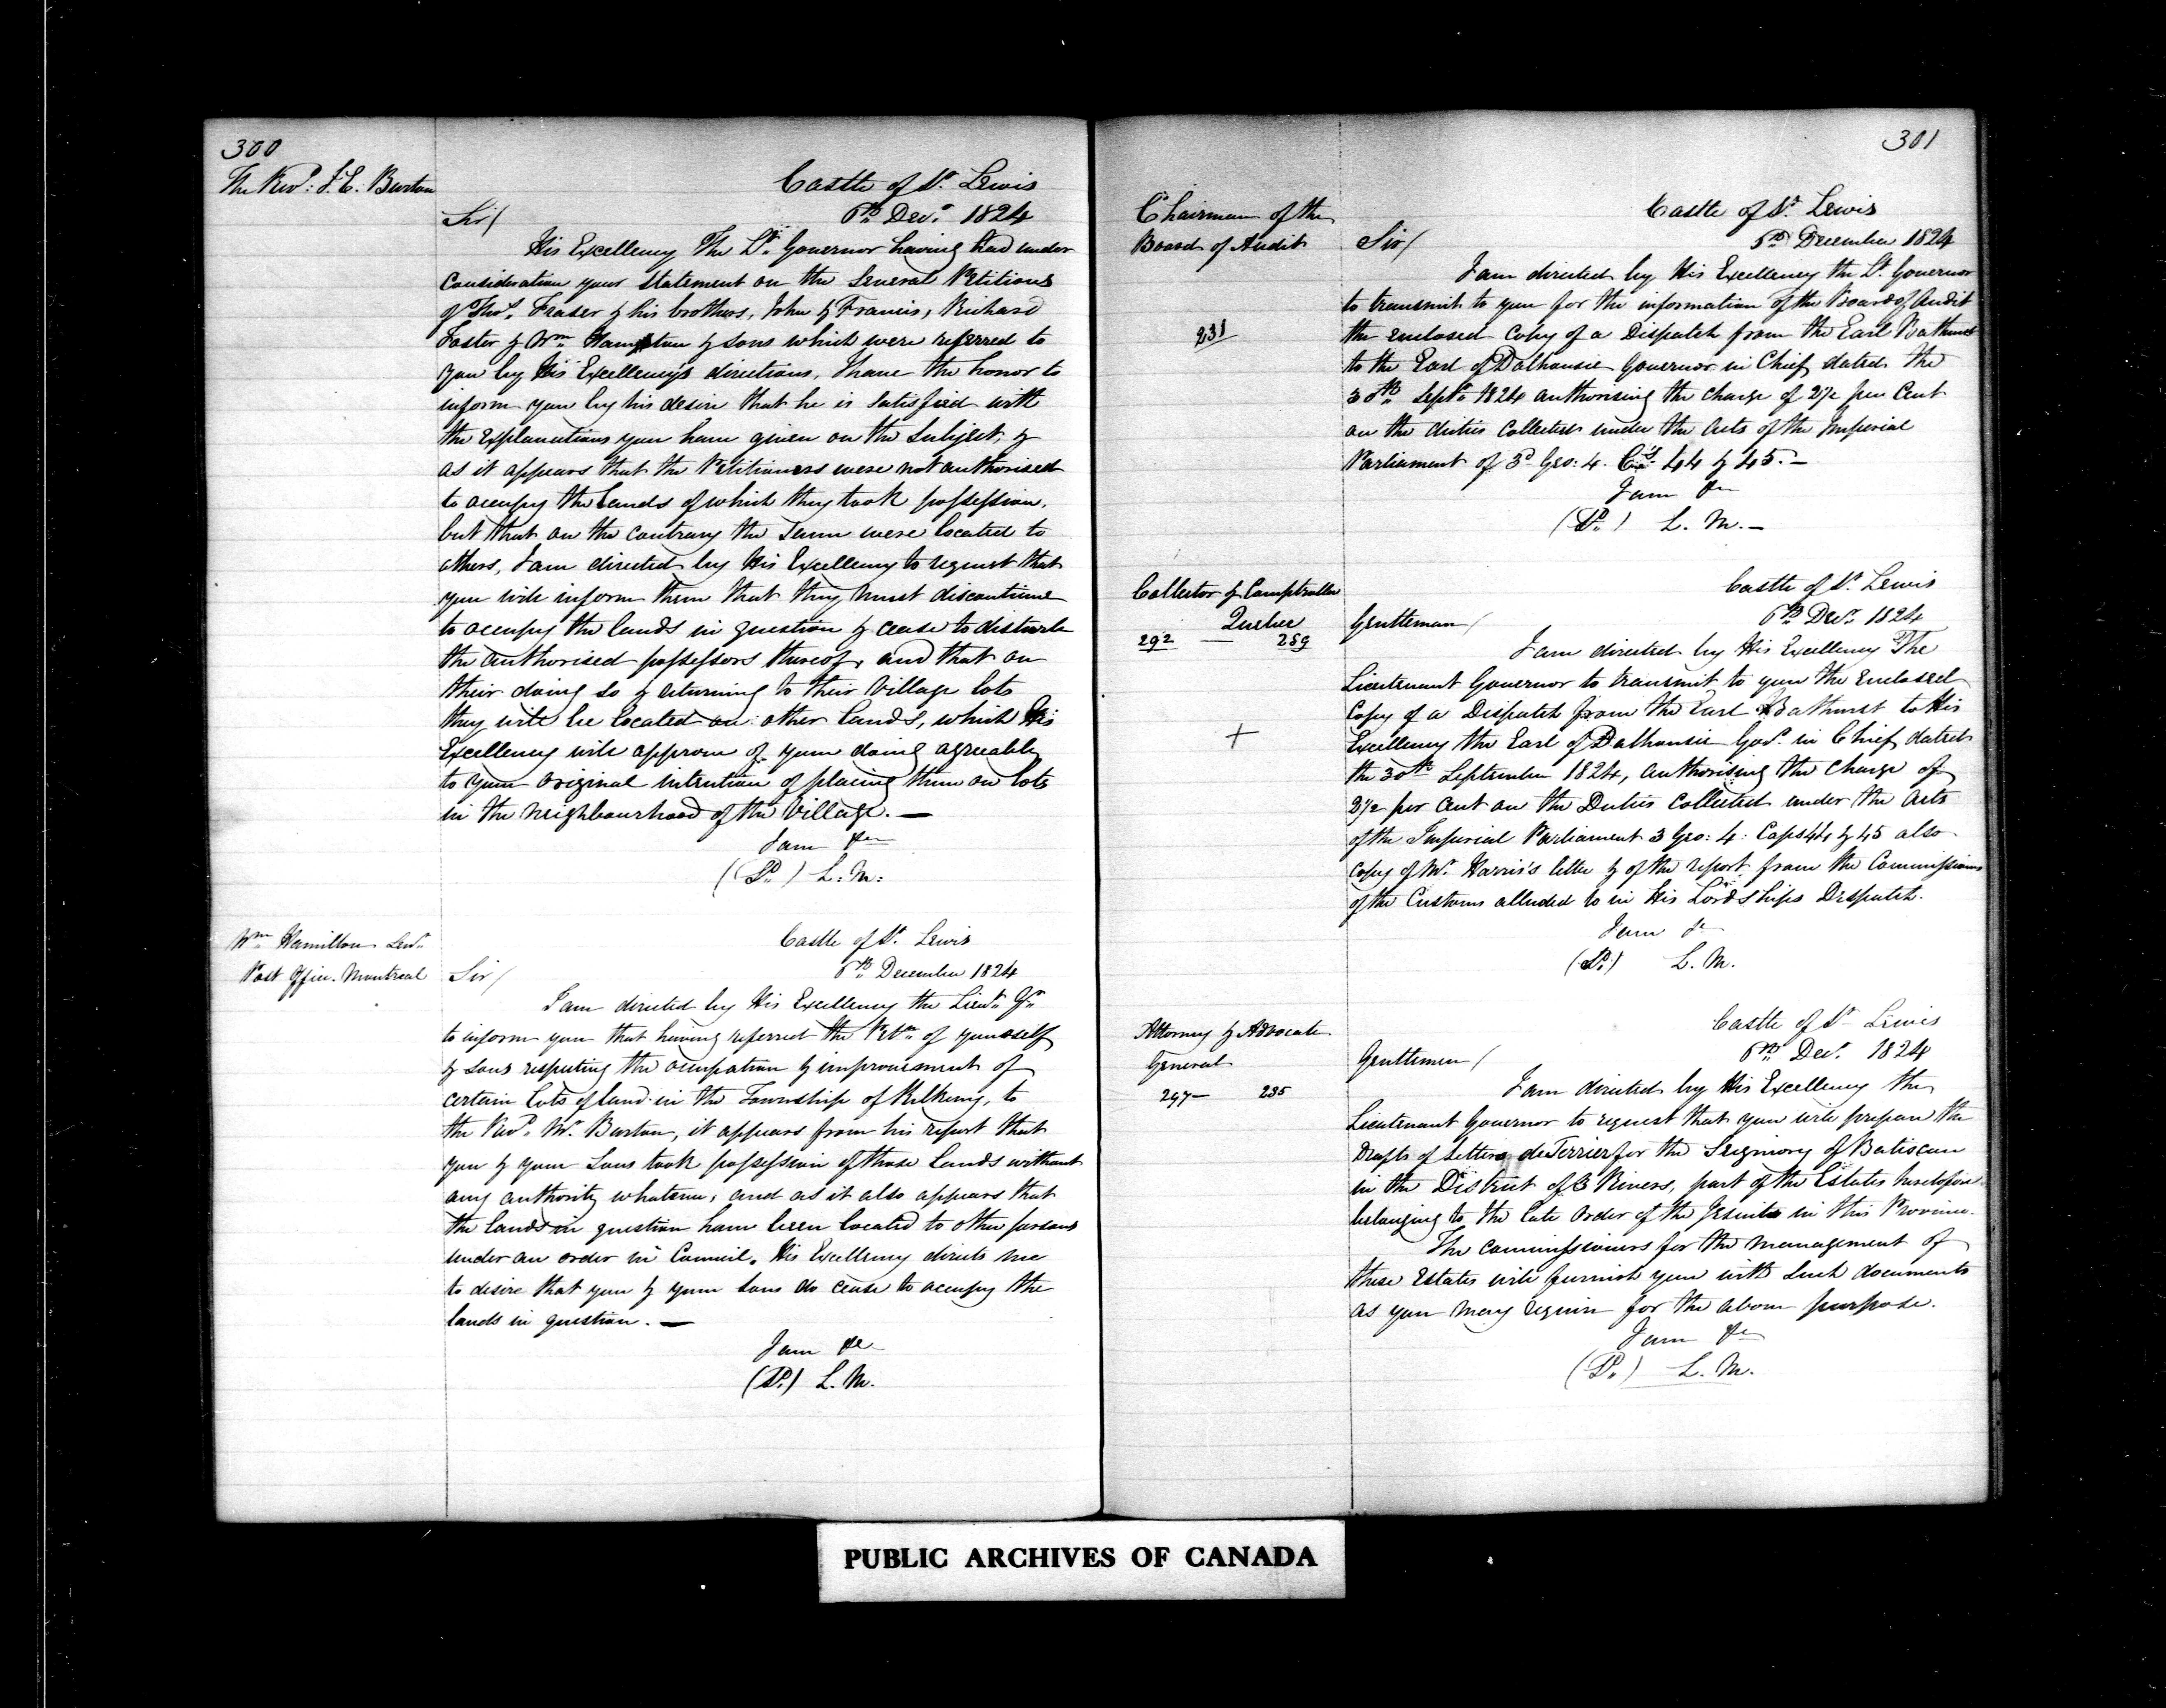 300
The Revd: J. E. Burton
Castle of St. Lewis
6th Decr. 1824
Sir/
His Excellency The Lt. Governor having had under
consideration your statement on the several Petitions
of Thos. Fraser & his brothers, John & Francis, Richard
Foster & Wm. Hampton & sons which were referred to
you by His Excellency's directions, I have the honor to
inform you by his desire that he is satisfied with
the explanations you have given on the subject, &
as it appears that the Petitioners were not authorised
to occupy the Lands of which they took possession,
but that on the contrary the same were located to
others, I am directed by His Excellency to request that
you will inform them that they must discontinue
to occupy the lands in question & cease to disturb
the authorised possessors thereof, and that on
their doing so & returning to their Village lots
they will be located on other lands, which His
Excellency will approve of your doing agreeably
to your original intention of placing them on lots
in the neighbourhood of the Village. —
I am &c
(Sd.) L: M:
Wm Hamilton Senr.
Post Office. Montreal
Castle of St. Lewis
6th December 1824
Sir/
I am directed by His Excellency the Lieut. Gr.
to inform you that having referred the Petn. of yourself
& sons respecting the occupation & improvement of
certain Lots of land in the Township of Kilkenny, to
the Revd. Mr. Burton, it appears from his report that
you & your Sons took possession of those lands without
any authority whatever, and as it also appears that
the lands in question have been located to other persons
under an order in Council. His Excellency directs me
to desire that you & your sons do cease to occupy the
lands in question. —
I am &c
(Sd.) L. M.
301
Chairman of the
Board of Audit
231
Castle of St. Lewis
6th December 1824
Sir/
I am directed by His Excellency the Lt. Governor
to transmit to you for the information of the Board of Audit
the enclosed Copy of a Dispatch from the Earl Bathurst
to the Earl of Dalhousie Governor in Chief dated the
30th. Septr. 1824 authorising the charge of 2½ per Cent
on the duties collected under the Acts of the Imperial
Parliament of 3d Geo: 4. Cas. 44 & 45. —
I am &c
(Sd.) L. M. —
Collector & Comptroller
Quebec
292 — 259
+
Castle of St. Lewis
6th Decr. 1824
Gentlemen/
I am directed by His Excellency The
Lieutenant Governor to transmit to you the enclosed
Copy of a Dispatch from the Earl Bathurst to His
Excellency the Earl of Dalhousie Govr. in Chief dated
the 30th September 1824, authorising the charge of
2½ per cent on the Duties Collected under the Acts
of the Imperial Parliament 3 Geo: 4: Caps 44 & 45 also
copy of Mr. Harris's letter & of the report from the Commissioners
of the Customs alluded to in His Lordships Dispatch.
I am &c
(Sd.) L. M.
Attorney & Advocate
General
297 — 235
Castle of St. Lewis
6th Decr. 1824
Gentlemen/
I am directed by His Excellency the
Lieutenant Governor to request that you will prepare the
Drafts of Letters de Terrier for the Seigniory of Batiscan
in the District of 3 Rivers, part of the Estates heretofore
belonging to the late Order of the Jesuits in this Province.
The Commissioners for the management of
these Estates will furnish you with such documents
as you may require for the above purpose.
I am &c
(Sd.) L. M.
PUBLIC ARCHIVES OF CANADA